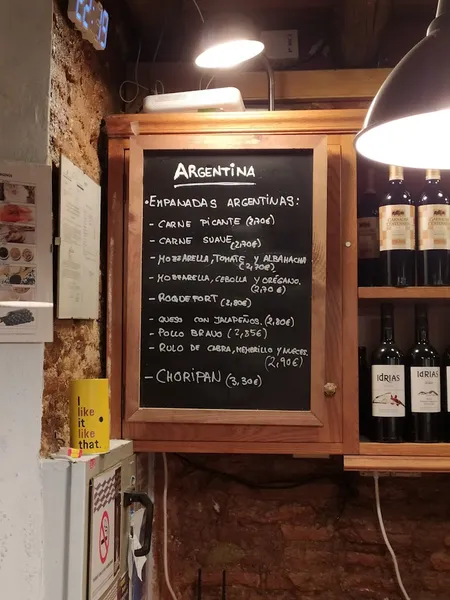 22:39
ARGENTINA
• EMPANADAS ARGENTINAS:
- CARNE PICANTE (2,70€)
- CARNE SUAVE (2,70€)
- MOZZARELLA, TOMATE Y ALBAHACA
(2,70€)
- MOZZARELLA, CEBOLLA Y ORÉGANO.
(2,70€)
- ROQUEFORT (2,80€)
- QUESO CON JALAPEÑOS. (2,80€)
- POLLO BRAVO (2,85€)
- RULO DE CABRA, MEMBRILLO Y NUECES.
(2,90€)
- CHORIPAN (3,30€)
I
like
it
like
that.
IDRIAS
IDRIAS